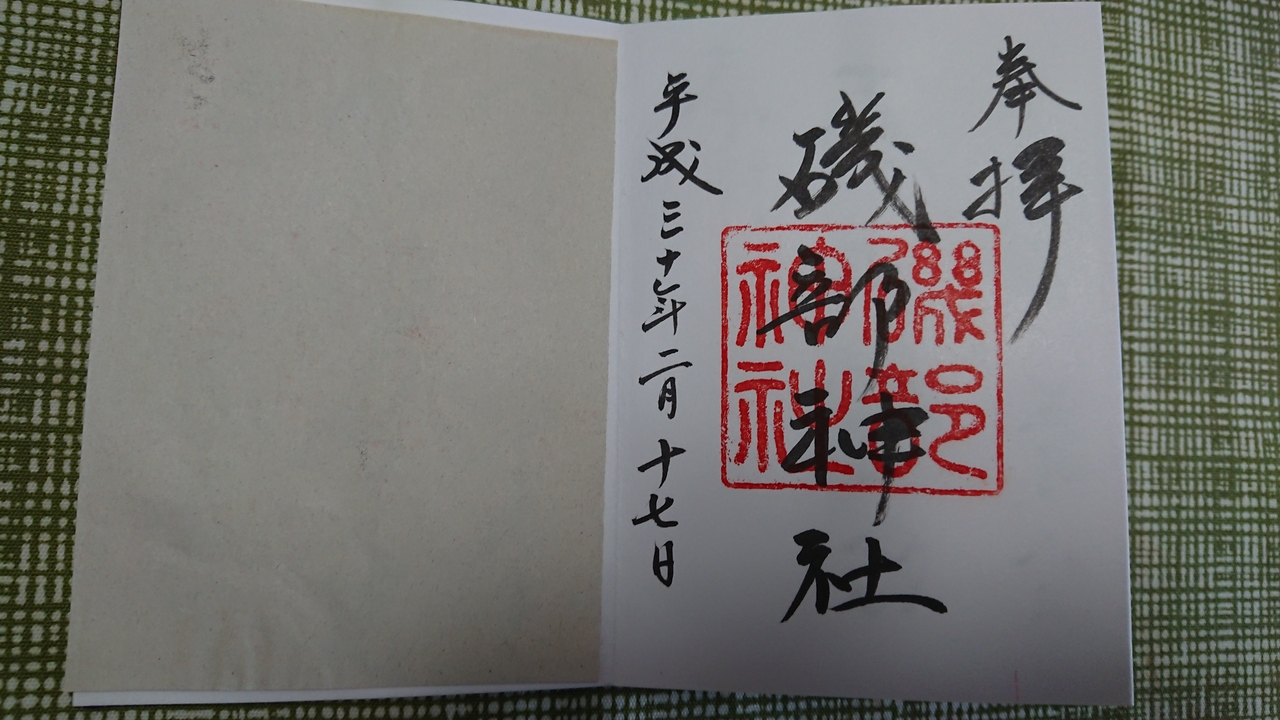 奉拝
磯部神社
磯部神社
平成三十年二月十七日